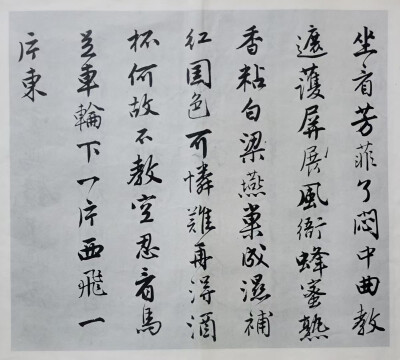 坐看芳菲了悶中曲教
遮護屏展風衙蜂蜜熟
香粘白梁燕巢成濕補
紅國色可憐難再得酒
杯何故不教空忍看馬
足車輪下一片西飛一
片東